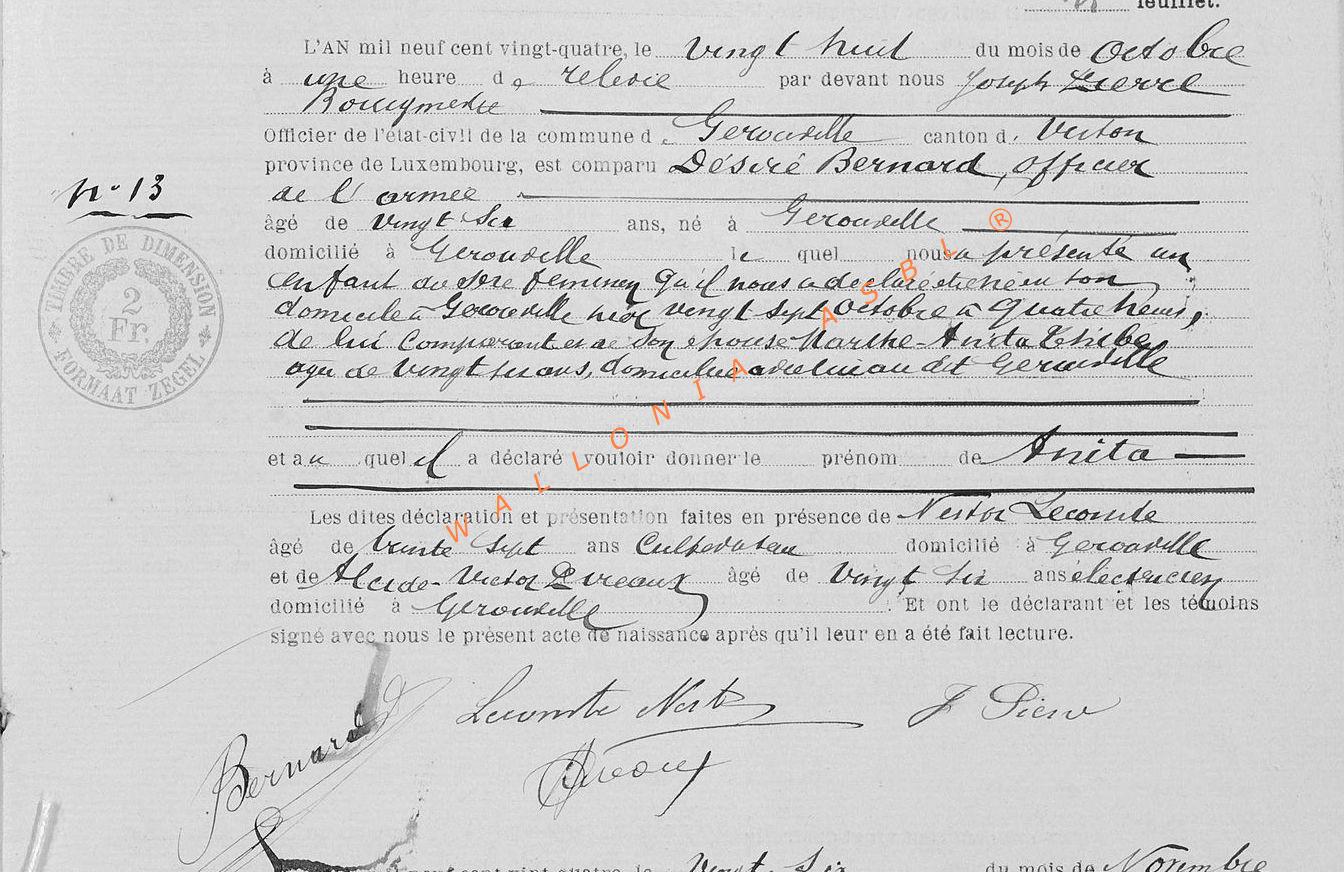 feuillet.
L'AN mil neuf cent vingt-quatre, le vingt huit du mois de Octobre
à une heure de relevée par devant nous Joseph Pierre
Officier de l'état-civil de la commune d. Gérouville canton d. Virton
province de Luxembourg, est comparu Désiré Bernard, officier
de l'armée
n° 13
âgé de vingt six ans, né à Gérouville
domicilié à Gérouville le quel nous a présenté un
enfant du sexe féminin qu'il nous a déclaré être né en son
domicile à Gérouville hier vingt sept Octobre à quatre heures,
de lui Comparant et de son épouse Marthe-Anita
agée de vingt six ans, domiciliée avec lui au dit Gérouville
TIMBRE DE DIMENSION
2
Fr.
FORMAAT ZEGEL
WALLONIA ASBL ®
et au quel il a déclaré vouloir donner le prénom de Anita
Les dites déclaration et présentation faites en présence de Nestor Lecomte
âgé de trente sept ans Cultivateur domicilié à Gérouville
et de Alcide-Victor âgé de vingt six ans électricien
domicilié à Gérouville. Et ont le déclarant et les témoins
signé avec nous le présent acte de naissance après qu'il leur en a été fait lecture.
Bernard
Lecomte Nestor
J Pierre
neuf cent vingt-quatre, le Vingt Six du mois de Novembre